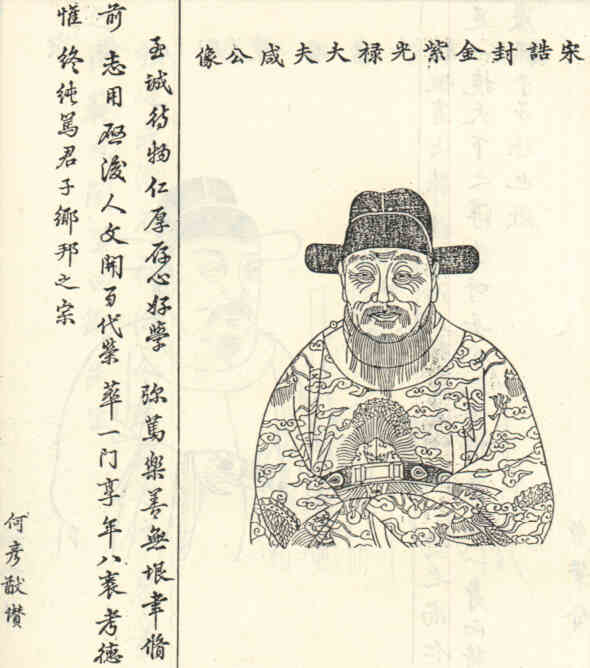 宋誥封金紫光禄大夫咸公像
至誠待物仁厚存心好學弥篤樂善無垠聿脩
前志用啓後人文開百代榮萃一门享年八袠考德
惟終純篤君子鄉邦之宗
何彦猷讚